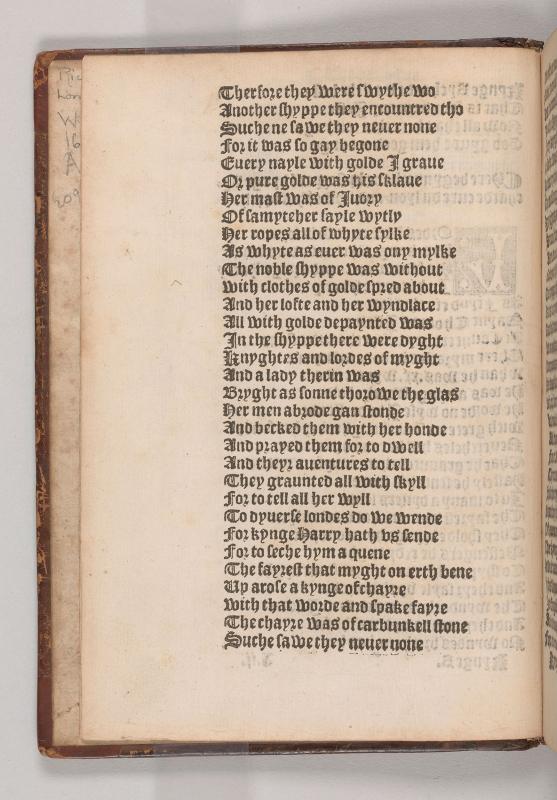 Ric
Lon
W
16
A
Therfore they were swythe wo
Another shyppe they encountred tho
Suche ne sawe they neuer none
For it was so gay begone
Euery nayle with golde I graue
Or pure golde was his sklaue
Her mast was of Juory
Of samyteher sayle wytly
Her ropes all of whyte sylke
As whyte as euer was ony mylke
The noble shyppe was without
With clothes of golde spred about
And her lofte and her wyndlace
All with golde depaynted was
In the shyppe there were dyght
Knyghtes and lordes of myght
And a lady therin was
Bryght as sonne thorowe the glas
Her men abrode gan stonde
And becked them with her honde
And prayed them for to dwell
And theyr auentures to tell
They graunted all with skyll
For to tell all her wyll
To dyuerse londes do we wende
For kynge Harry hath vs sende
For to seche hym a quene
The fayrest that myght on erth bene
Up arose a kynge of chayre
With that worde and spake fayre
The chayre was of carbunkell stone
Suche sawe they neuer none